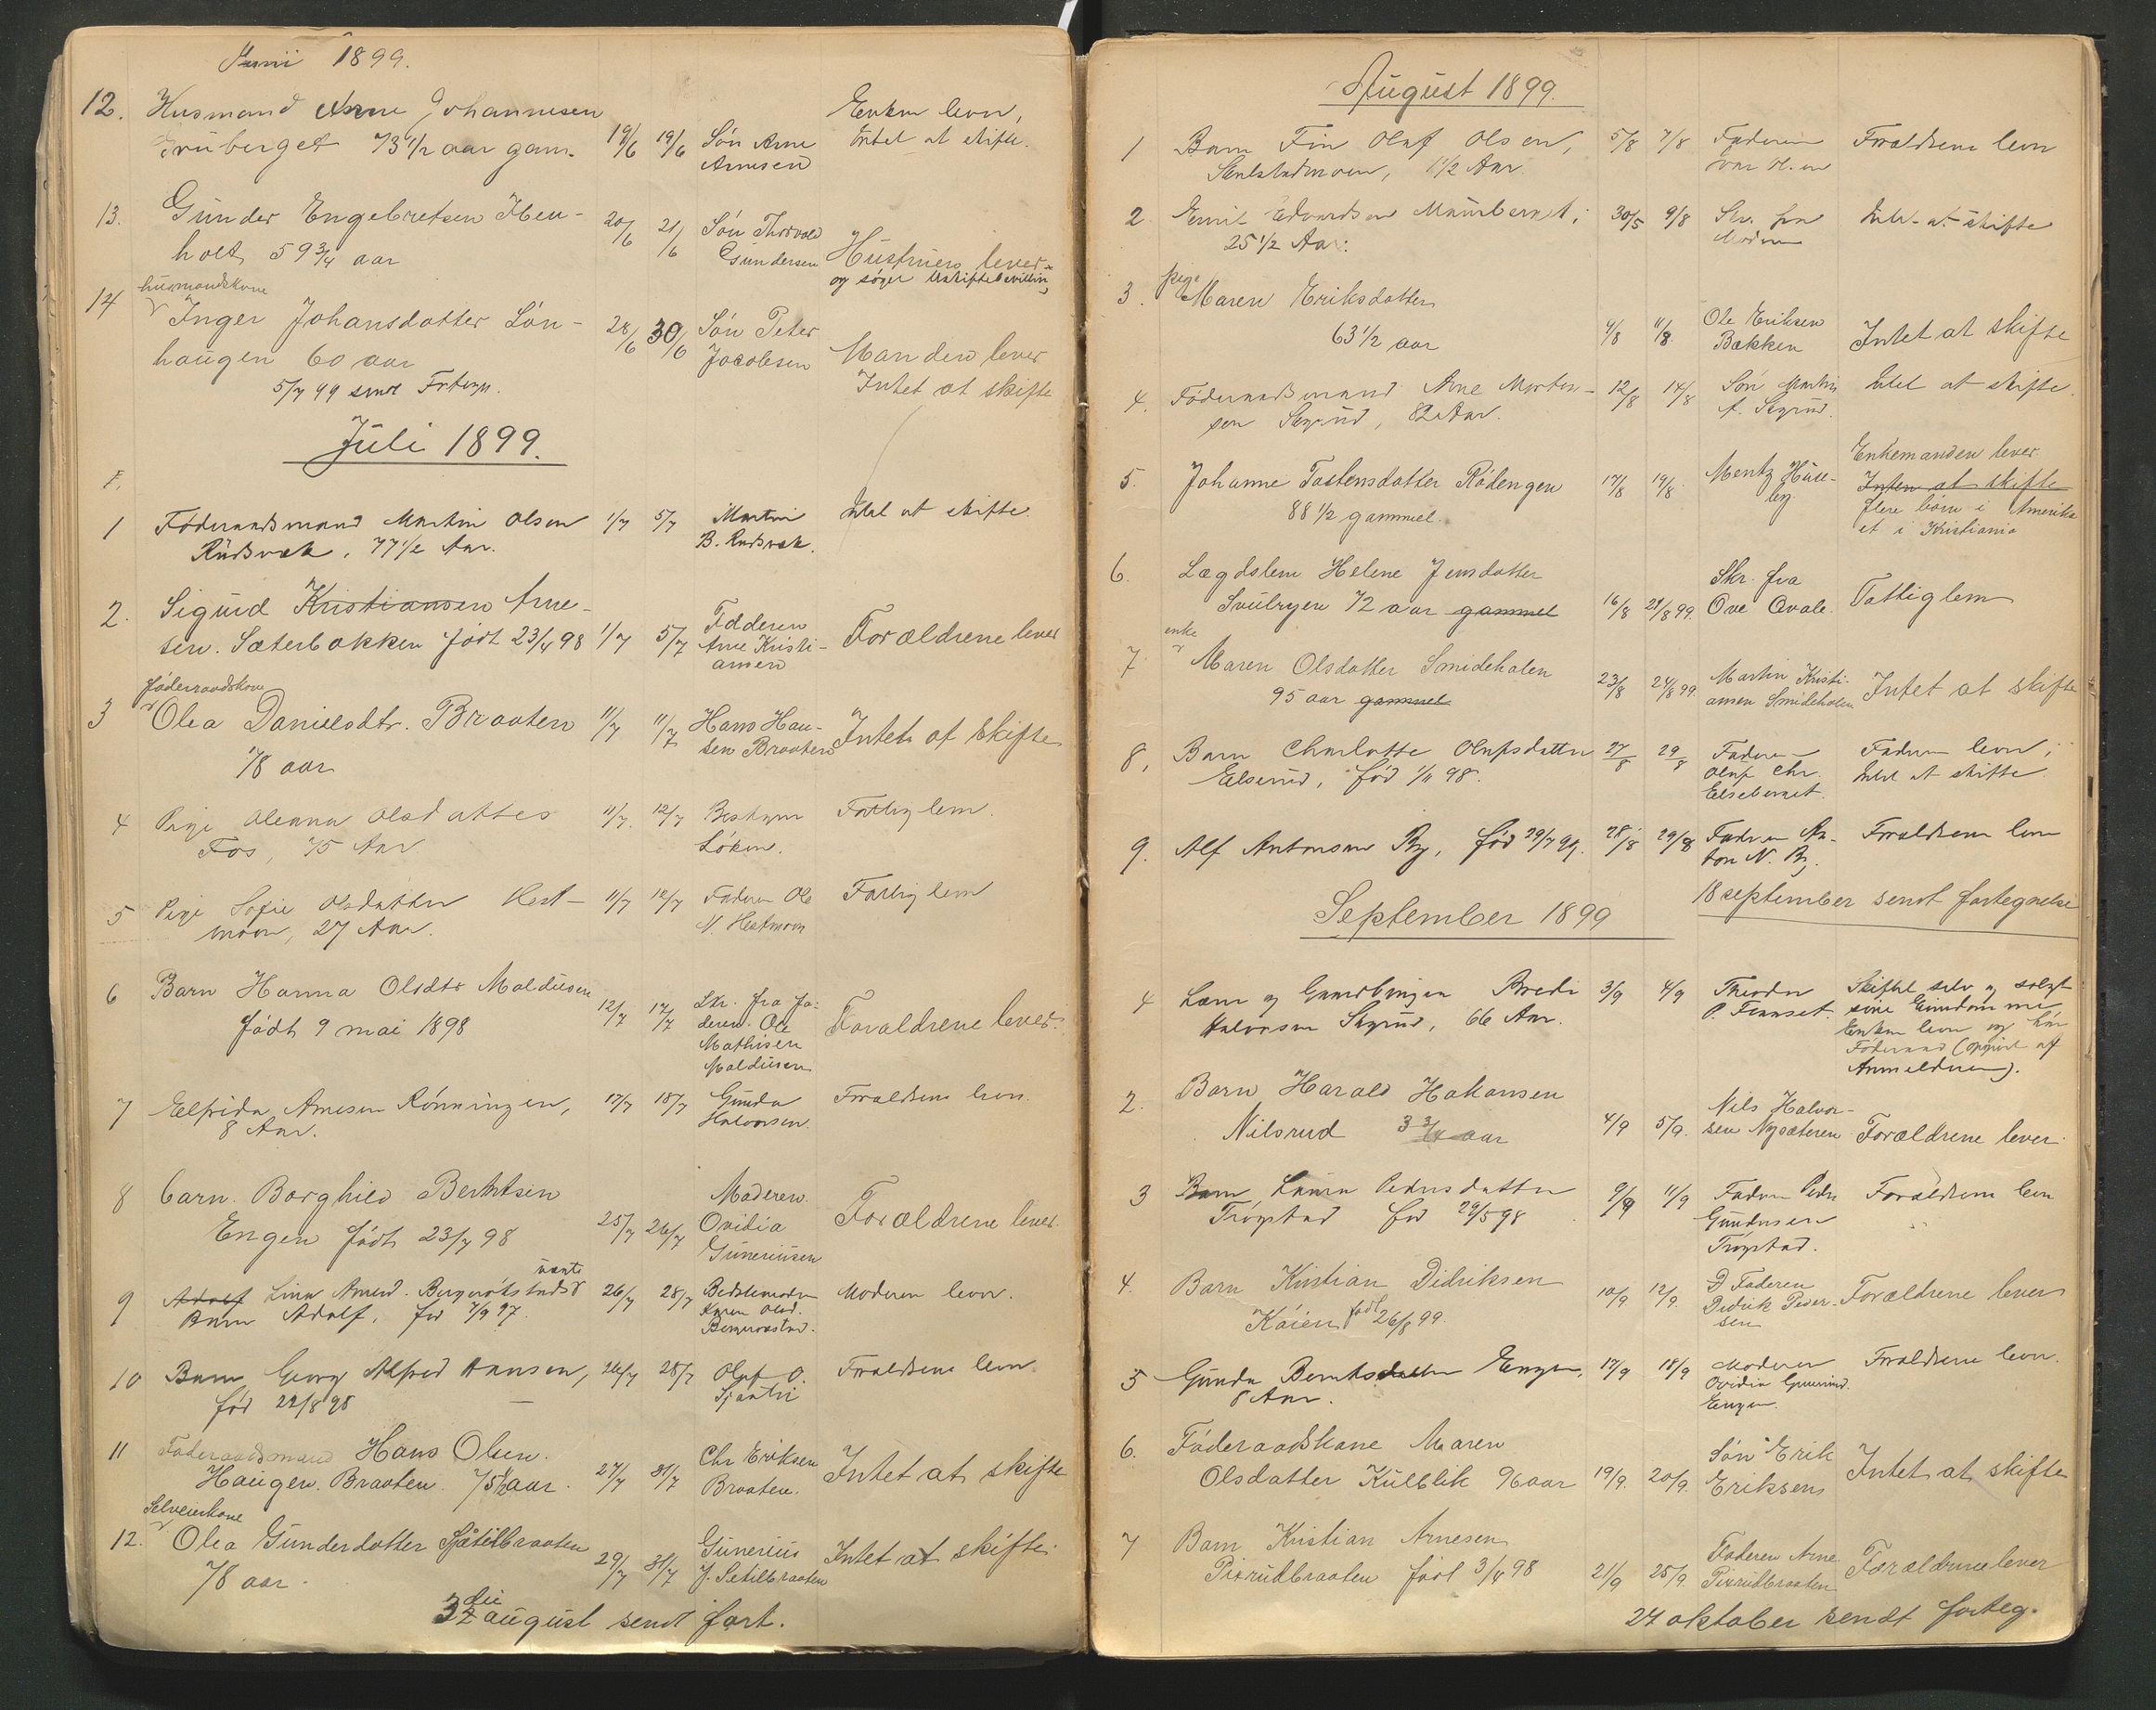 Junii 1899.
12. Husmand Arne Johannesen 19/6 19/6 Søn Arne Arnesen Enken lever,
73 1/2 aar gam. Intet at skifte.
13. Gunder Engebretsen Iben- 20/6 21/6 Søn Thorvald
holt 59 3/4 aar Gundersen Hustruen lever
og søger Uskiftebevilling
husmandskone
14 Inger Johansdatter Løn- 28/6 30/6 Søn Peter
haugen 60 aar Jacobsen Manden lever
5/7 99 sendt Fortegn. Intet at skifte
Juli 1899.
1 Føderaadsmand Martin Olsen 1/7 5/7 Martin Intet at skifte.
Rudsvæk, 77 1/2 Aar. B. Rudsvæk.
2. Sigurd Kristiansen Arne- 1/7 5/7 Faderen Forældrene lever
sen. Sæterbakken født 23/4 98 Arne Kristi-
ansen
føderaadskone
3 Olea Danielsdtr. Braaten 11/7 11/7 Hans Han- Intet at skifte
78 aar sen Braaten
4 Pige Oleana Olsdatter 11/7 12/7 Bestyrer Fattiglem.
Fos, 75 Aar Løken.
5 Pige Sofie Olsdatter Hest- 11/7 12/7 Faderen Ole Fattiglem
moen, 27 Aar. N. Hestmoen
6 Barn Hanna Olsdtr Moldusen 12/7 17/7 Skr. fra Fa-
født 9 mai 1898 deren Ole Forældrene lever.
Mathisen
Moldusen
7 Elfrida Arnesen Rønningen, 17/7 18/7 Gunda Forældrene lever.
8 Aar. Halvorsen.
8 barn Borghild Berntsen Moderen
Engen født 23/7 98 25/7 26/7 Ovidia Forældrene lever.
Guneriusen
9 Adolf Lina Arnesd. Bergerøkstads uægte 26/7 28/7 Bedstemoder Moderen lever.
Barn Adolf, fød 7/9 97 Karen Olsd.
10 Barn Georg Alfred Hansen, 26/7 28/7 Olaf O. Forældrene lever.
fød 22/8 98
11 Føderaadsmand Hans Olsen 27/7 31/7 Chr Eriksen Intet at skifte
Haugen. Braaten. 75 1/2 aar. Braaten.
Selveierkone
12. Olea Gunderdatter Sjætilbraaten 29/7 31/7 Gunerius Intet at skifte.
78 aar. J. Setilbraaten
3die august sendt fort.
August 1899.
1 Barn Fin Olaf Olsen, 5/8 7/8 Faderen Forældrene lever
1 1/2 Aar.
2 Emil Edvardsen 30/5 9/8 Skr. fra Intet at skifte
25 1/2 Aar. Moderen
pige
3. Maren Eriksdatter
63 1/2 aar 9/8 11/8 Ole Eriksen Bækken Intet at skifte
4. Føderaadsmand Arne Morten- 12/8 14/8 Søn Martin Intet at skifte.
sen Skyrud, 82 Aar. A. Skyrud.
5. Johanne Tostensdatter Rødengen 17/8 19/8 Mentz Huse- Enkemanden lever.
88 1/2 gammel. by Inten at skifte
flere børn i Amerika
et i Kristiania
6. Lægdslem Helene Jensdatter Skr. fra
72 aar gammel 16/8 21/8 99. Ove Qvale. Fattiglem
enke
7. Maren Olsdatter Smideholen 23/8 24/8 99. Martin Kristi- Intet at skifte
95 aar gammel ansen Smideholen
8. Barn Charlotte Olafsdatter 27/8 29/8 Faderen Faderen lever;
Elserud, fød 1/11 98. Olaf Chr. Intet at skifte.
9. Alf Antonsen By, fød 29/7 99. 28/8 29/8 Faderen An- Forældrene lever
ton N. By.
18 september sendt fortegnelse
September 1899
1 Halvorsen Skyrud, 66 Aar. 3/9 4/9 Theodor Skiftet selv og solgt
sine Eiendomme
Enken lever og har
Føderaad (opgivet af
Anmelderen).
2. Barn Harald Hakansen Nils Halvor-
Nilsrud 3 3/4 aar 4/9 5/9. sen Nysæteren Forældrene lever.
3 Barn Laura Pedersdatter 9/9 11/9 Faderen Peder Forældrene lever
Trøgstad fød 29/5 98 Gundersen
Trøgstad.
4. Barn Kristian Didriksen 10/9. 12/9. Faderen Forældrene lever
født 26/8 99. Didrik Peder-
sen
5 Gunda Berntsdatter Engen, 17/9 18/9 Moderen Forældrene lever.
8 Aar. Ovidia Guneriusd.
Engen.
6. Føderaadskone Maren Søn Erik
Olsdatter Kulblik 96 aar 19/9. 20/9. Eriksen Intet at skifte
7 Barn Kristian Arnesen Faderen Arne
Pixrudbraaten født 3/4 98 21/9 25/9. Pixrudbraaten Forældrene lever
27 oktober sendt forteg.